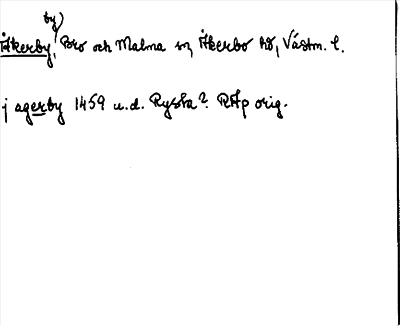 by)
Åkerby, Bro och Malma sn, Åkerbo hd, Västm. l.
j agerby 1459 u.d. Ryssa? RAp orig.